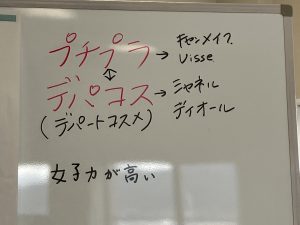 プチプラ → キャンメイク
Visse
↕
デパコス → シャネル
(デパートコスメ) ディオール
女子力が高い